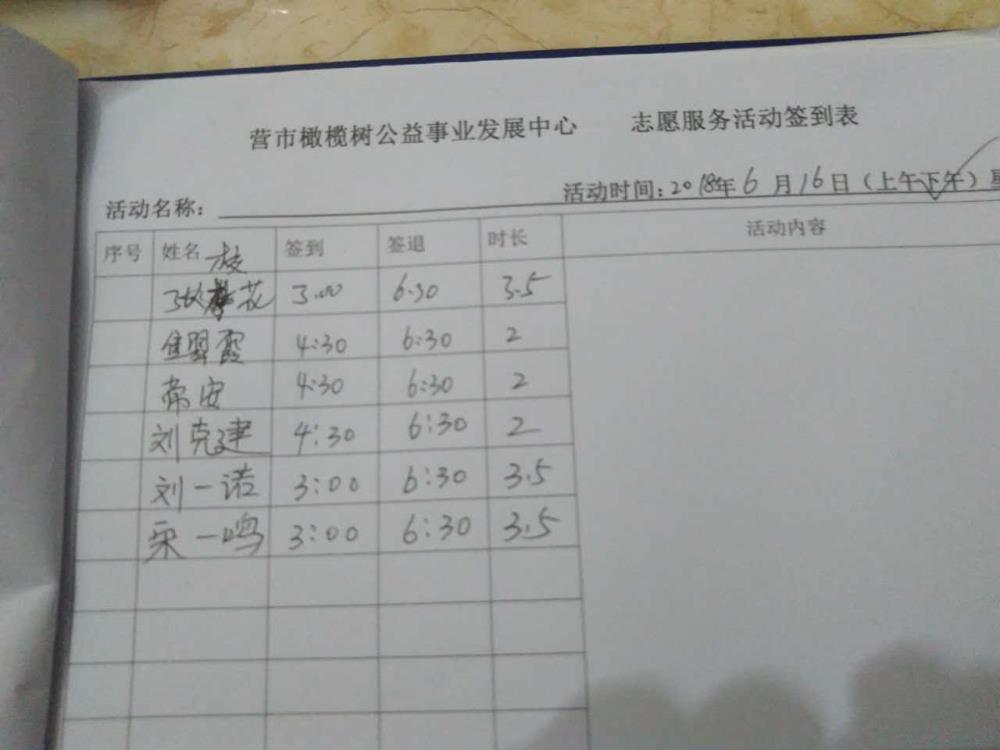 营市橄榄树公益事业发展中心 志愿服务活动签到表
活动名称： 活动时间：2018年6月16日（上午下午）
序号 姓名 签到 签退 时长 活动内容
张枝花 3:00 6:30 3.5
4:30 6:30 2
常安 4:30 6:30 2
刘克建 4:30 6:30 2
刘一诺 3:00 6:30 3.5
宋一鸣 3:00 6:30 3.5